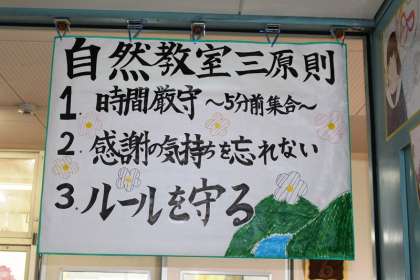 自然教室三原則
1. 時間厳守 ～5分前集合～
2. 感謝の気持ちを忘れない
3. ルールを守る